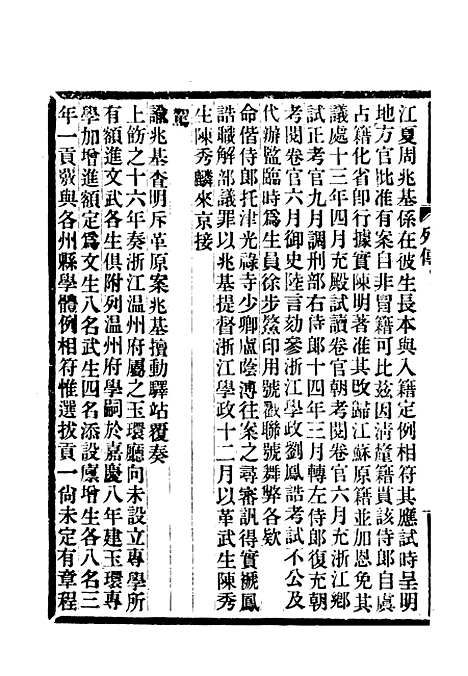 列傳
江夏周兆基係在彼生長本與入籍定例相符其應試時呈明
地方官批准有案自非冒籍可比茲因清釐籍貫該侍郎自虞
占籍化省即行據實陳明著准其改歸江蘇原籍並加恩免其
議處十三年四月充殿試讀卷官朝考閱卷官六月充浙江鄉
試正考官九月調刑部右侍郎十四年三月轉左侍郎復充朝
考閱卷官六月御史陸言劾參浙江學政劉鳳誥考試不公及
代辦監臨時爲生員徐步鰲印用號戳聯號舞弊各欵
命偕侍郎托津光祿寺少卿盧蔭溥往案之尋審訊得實褫鳳
誥職解部議罪以兆基提督浙江學政十二月以革武生陳秀
生陳秀麟來京接
駕
諭兆基查明斥革原案兆基擅動驛站覆奏
上飭之十六年奏浙江温州府屬之玉環廳向未設立專學所
有額進文武各生俱附列温州府學嗣於嘉慶八年建玉環專
學加增進額定爲文生八名武生四名添設廩增生各八名三
年一貢歲與各州縣學體例相符惟選拔貢一尙未定有章程